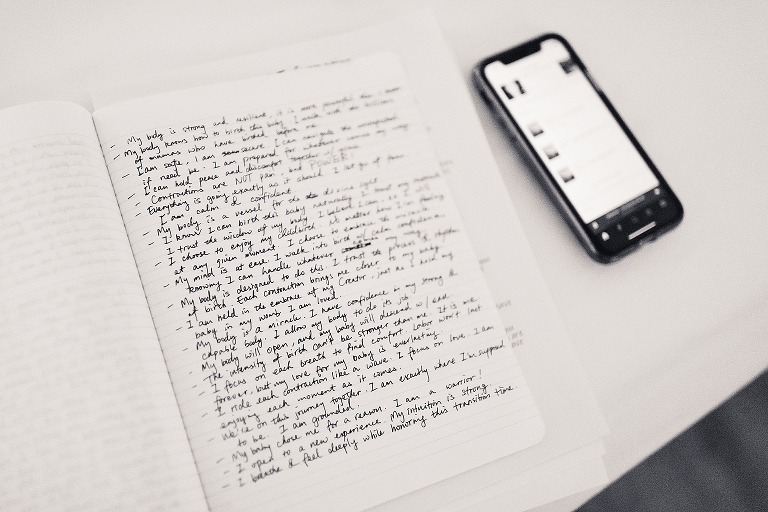 - My body is strong and resilient, it is more powerful than I know.
- My body knows how to birth this baby. I walk with the
of mamas who have birthed before me
- I am safe, I am secure. I can navigate the unexpected
if need be. I am prepared for whatever comes my way.
- I can hold peace and discomfort together
- Contractions are NOT pain, but POWER!
- Everything is going exactly as it should. I let go of fear
I am calm & confident.
- My body is a vessel for the divine light
- I know I can birth this baby naturally. I trust my
- I trust the wisdom of my body. I believe I can & I will
- I choose to enjoy my childbirth no matter how I'm feeling
at any given moment. I choose to embrace the
- My mind is at ease. I walk into birth w/ calm confidence,
knowing I can handle whatever my way.
- My body is designed to do this. I trust the process & rhythm
of birth. Each contraction brings me closer to my baby.
- I am held in the embrace of my Creator, just as I hold my
baby in my womb. I am loved.
- My body is a miracle. I have confidence in my strong &
capable body. I allow my body to do its job
- My body will open, and my baby will descend w/ ease
- The intensity of birth can't be stronger than me. It is me
- I focus on each breath to find comfort. Labor won't last
forever, but my love for my baby is everlasting.
- I ride each contraction like a wave. I focus on love. I am
enjoying each moment as it comes.
- We're on this journey together. I am exactly where I'm supposed
to be. I am grounded.
- My baby chose me for a reason. I am a warrior!
- I open to a new experience. My intuition is strong.
- I breathe & feel deeply while honoring this transition time.